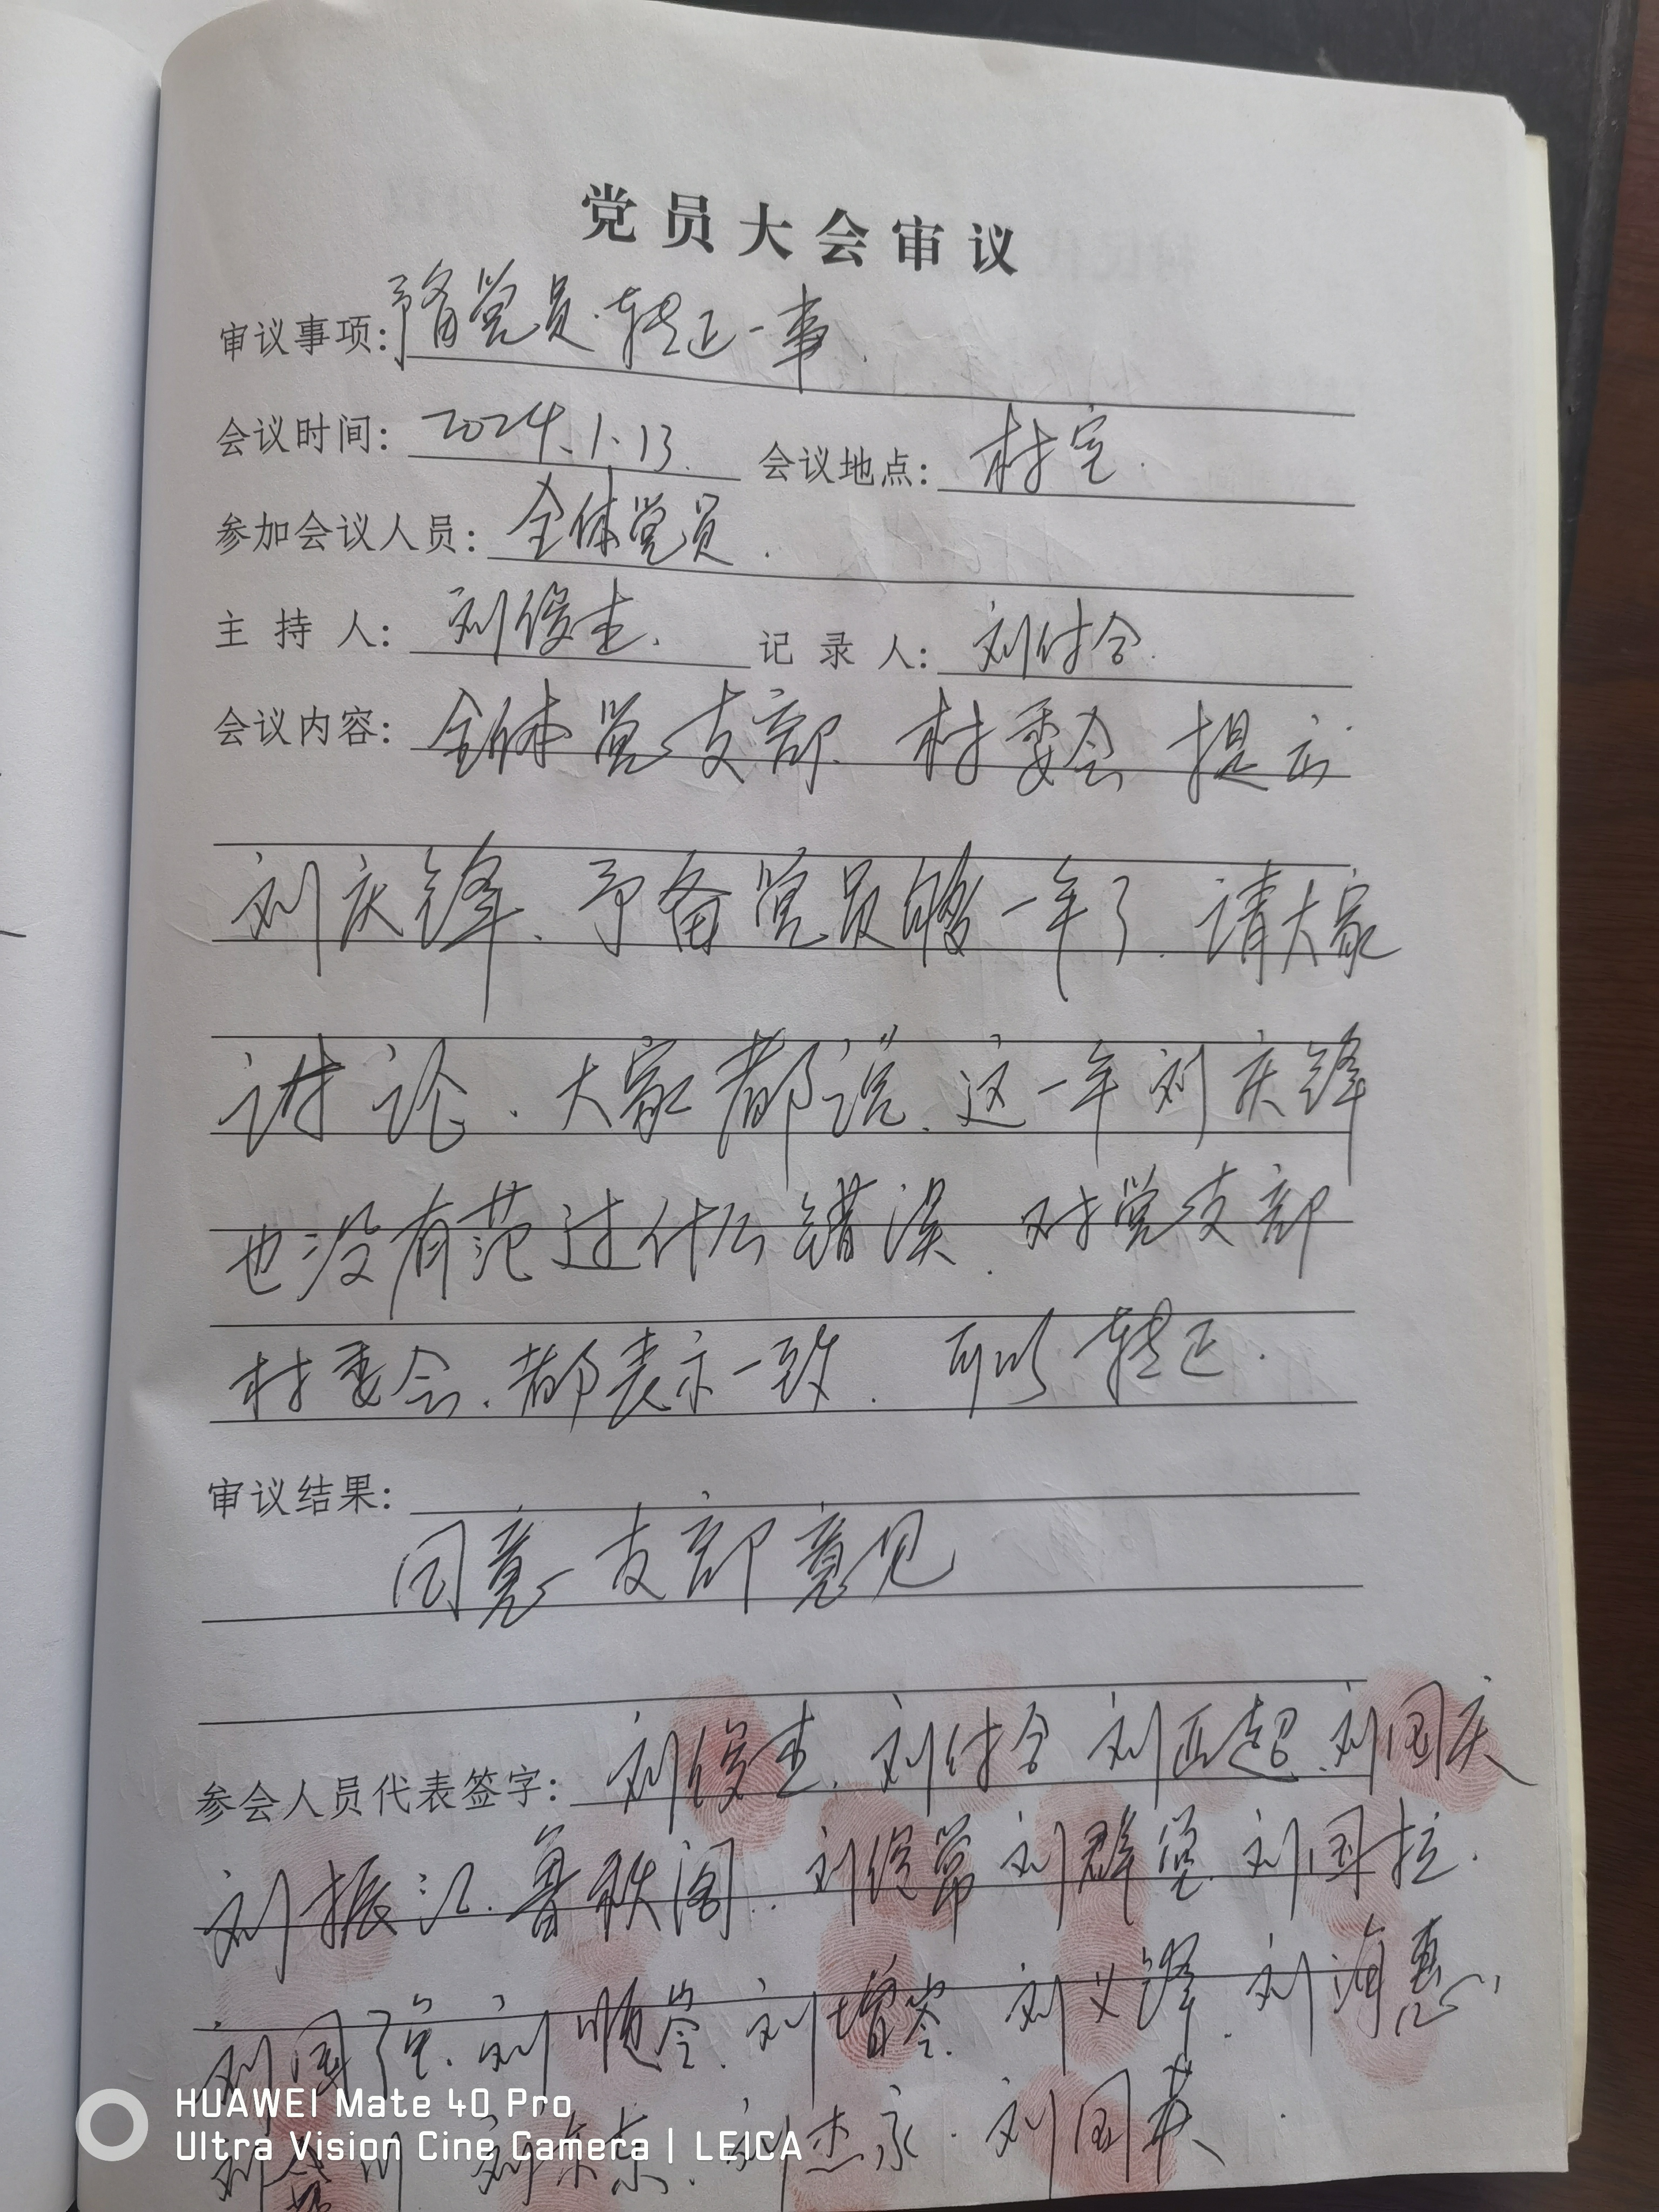 党员大会审议
审议事项: 予备党员转正一事.
会议时间: 2024.1.13. 会议地点: 村室.
参加会议人员: 全体党员.
主持人: 刘俊生. 记录人: 刘付合.
会议内容: 全体党支部. 村委会 提议
刘庆锋. 予备党员够一年了. 请大家
讨论. 大家都说. 这一年刘庆锋
也没有范过什么错误. 对党支部
村委会. 都表示一致. 可以转正.
审议结果:
同意支部意见
参会人员代表签字: 刘俊生. 刘付合 刘正超. 刘国庆
刘振江. 鲁秩阁. 刘俊常 刘群堂. 刘国拉.
刘国强. 刘顺岑. 刘增岑. 刘义锋. 刘海惠.
刘 刘东东. 刘杰永. 刘国英
HUAWEI Mate 40 Pro
Ultra Vision Cine Camera | LEICA